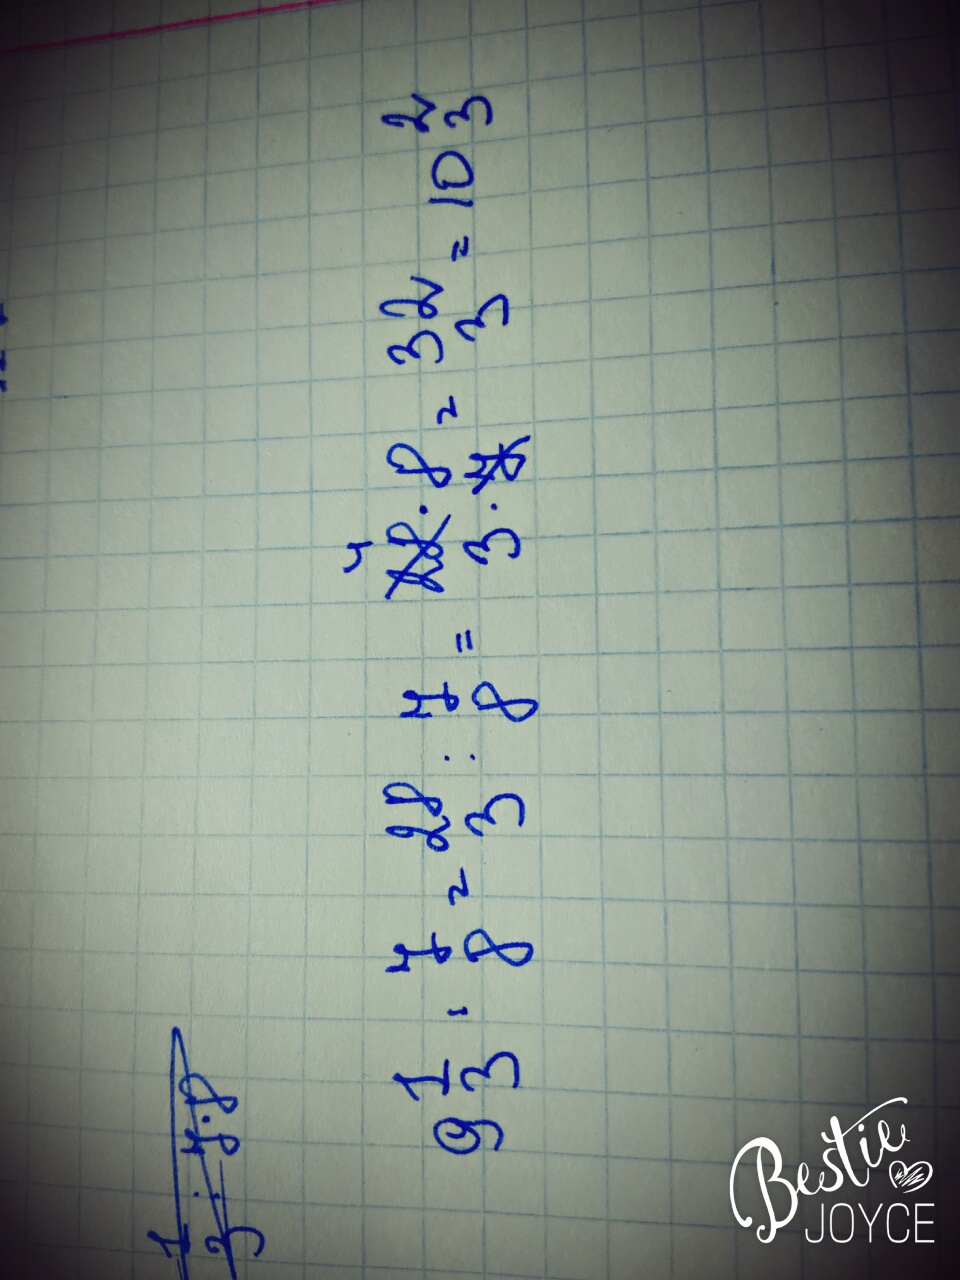 9 1/3 : 7/8 = 28/3 : 7/8 = 28·8/3·7 = 32/3 = 10 2/3
4
1/3 : 7·8
Bestie
JOYCE